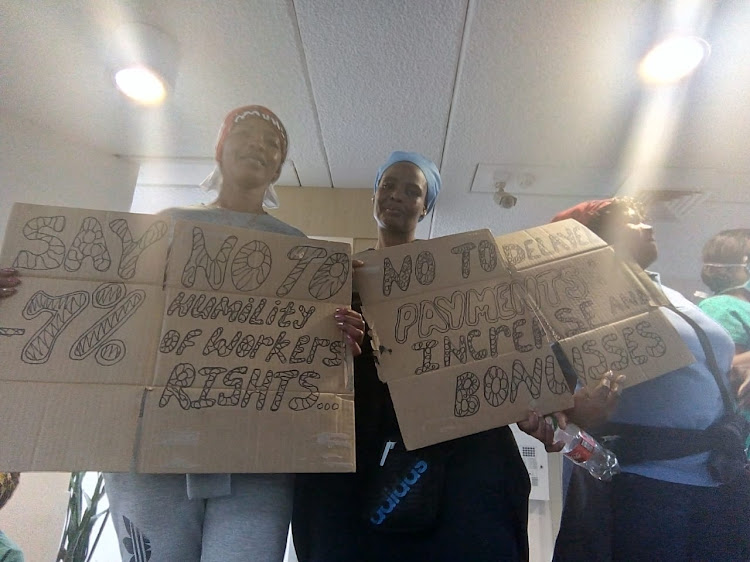 SAY NO TO
-7%
HUMILITY
OF WORKERS
RIGHTS...
NO TO DELAYED
PAYMENTS
INCREASE AND
BONUSSES
adidas